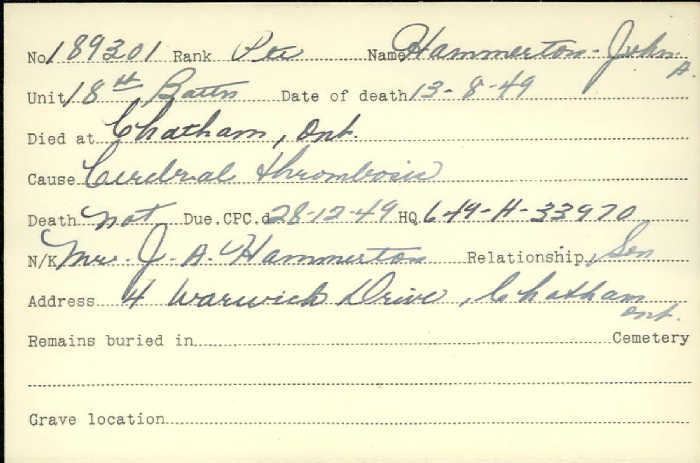 No. 189301 Rank Pte Name Hammerton - John A
Unit 18th Battn Date of death 13-8-49
Died at Chatham, Ont.
Cause Cerebral thrombosis
Death not Due. CPC.d 28-12-49 HQ 649-H-33970
N/K Mr. J. A. Hammerton Relationship Son
Address 4 Warwick Drive, Chatham Ont.
Remains buried in Cemetery
Grave location